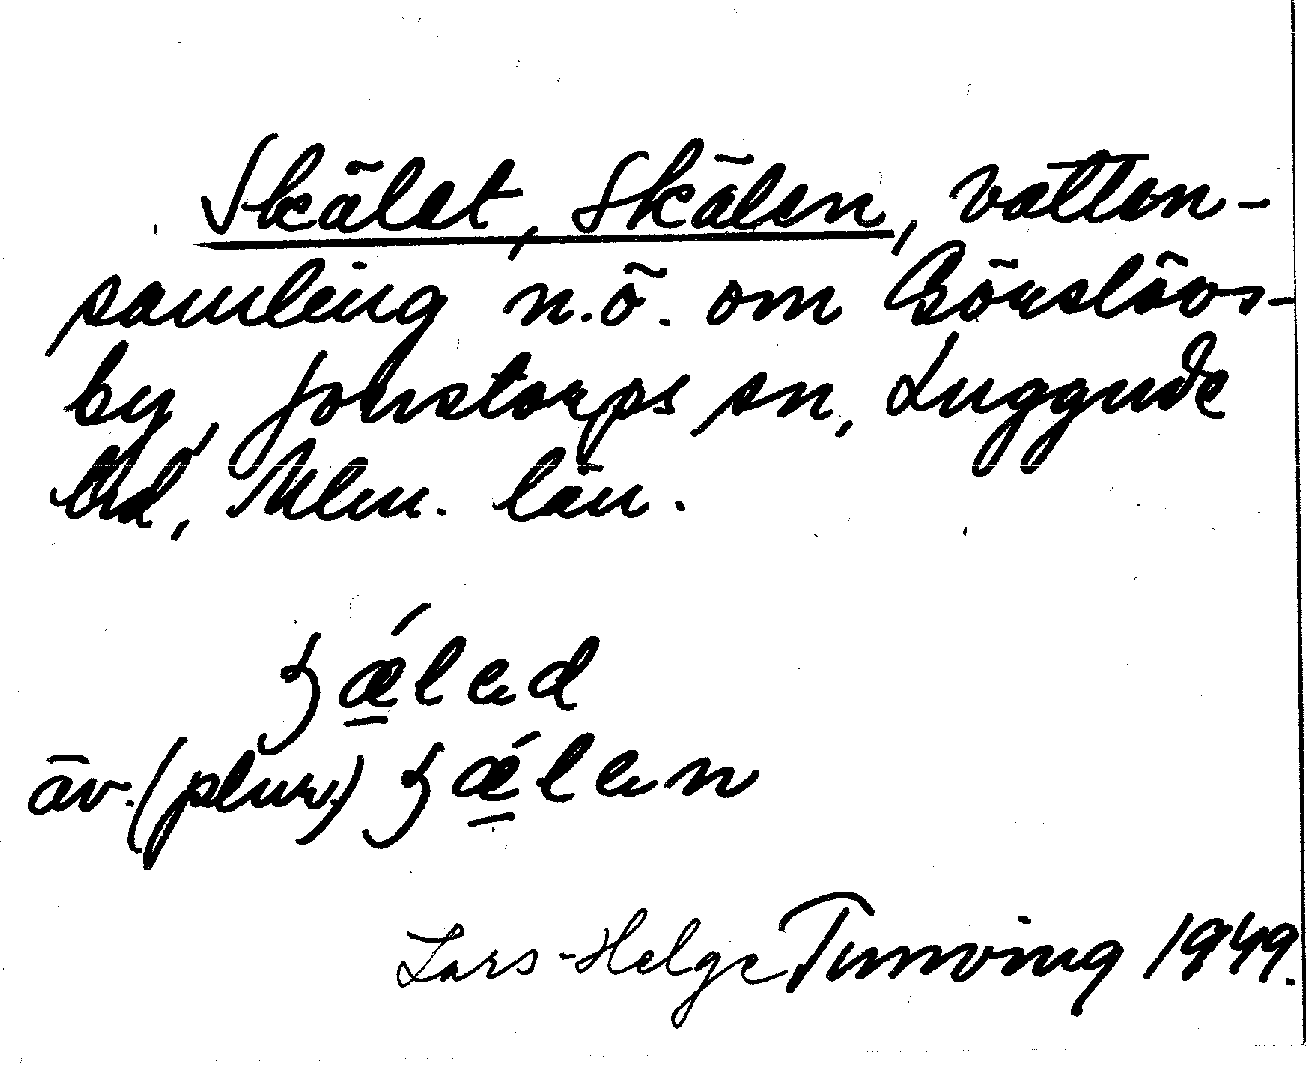 Skälet, Skälen, vatten-
samling n.ö. om Görslövs-
by, Jonstorps sn, Luggude
hd, Mlm. län.
ʒǽ̲led
äv. (plur.) ʒǽ̲len
Lars-Helge Tunving 1949.